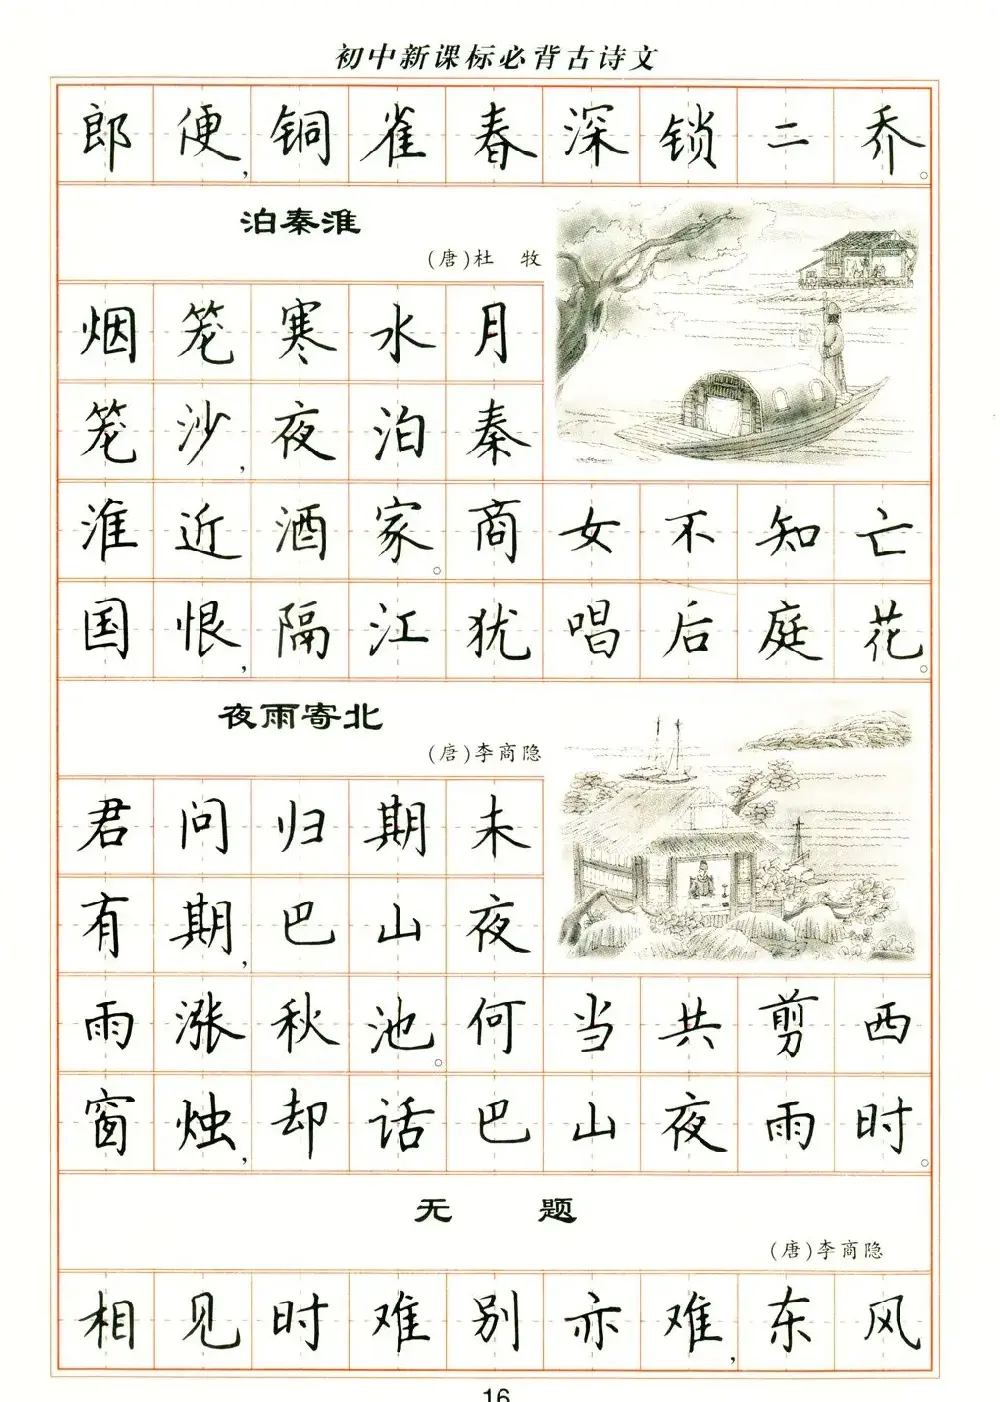 初中新课标必背古诗文
郎便,铜雀春深锁二乔。
泊秦淮
(唐)杜 牧
烟笼寒水月
笼沙,夜泊秦
淮近酒家。商女不知亡
国恨,隔江犹唱后庭花。
夜雨寄北
(唐)李商隐
君问归期未
有期,巴山夜
雨涨秋池。何当共剪西
窗烛,却话巴山夜雨时。
无 题
(唐)李商隐
相见时难别亦难,东风
16